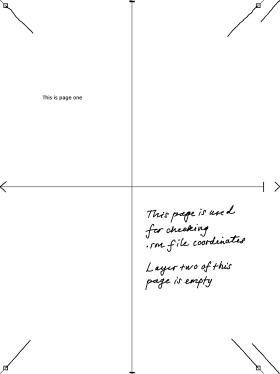 This is page one
This page is used
for checking
.rm file coordinates
Layer two of this
page is empty